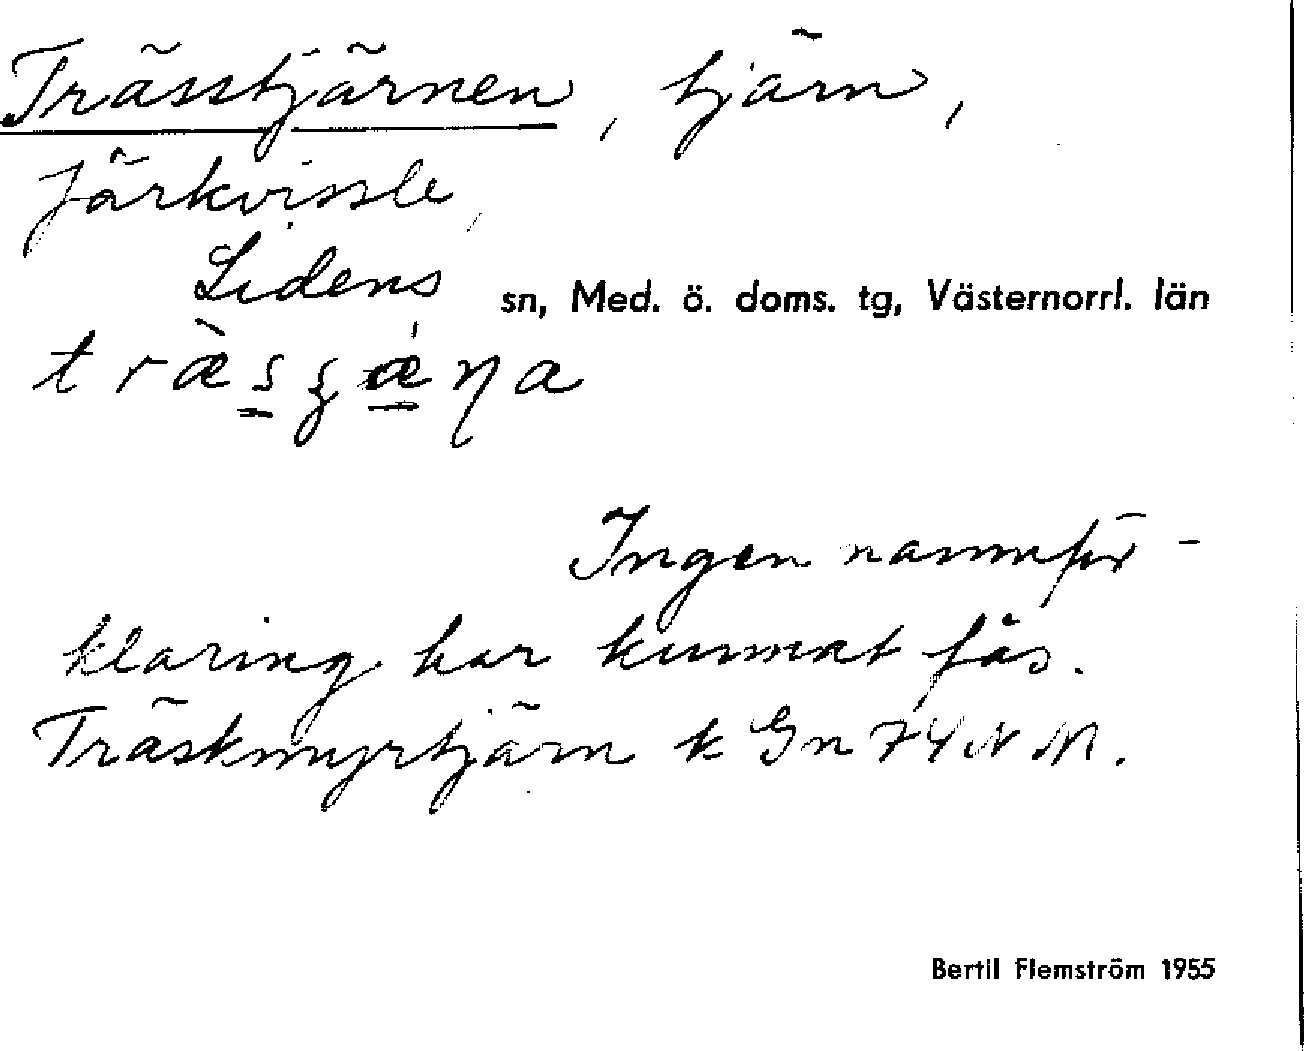 Trässtjärnen, tjärn,
Järkvissle,
Lidens sn, Med. ö. doms. tg, Västernorrl. län
Ingen namnför-
klaring har kunnat fås.
Träskmyrtjärn k Gn 74 N M.
Bertil Flemström 1955